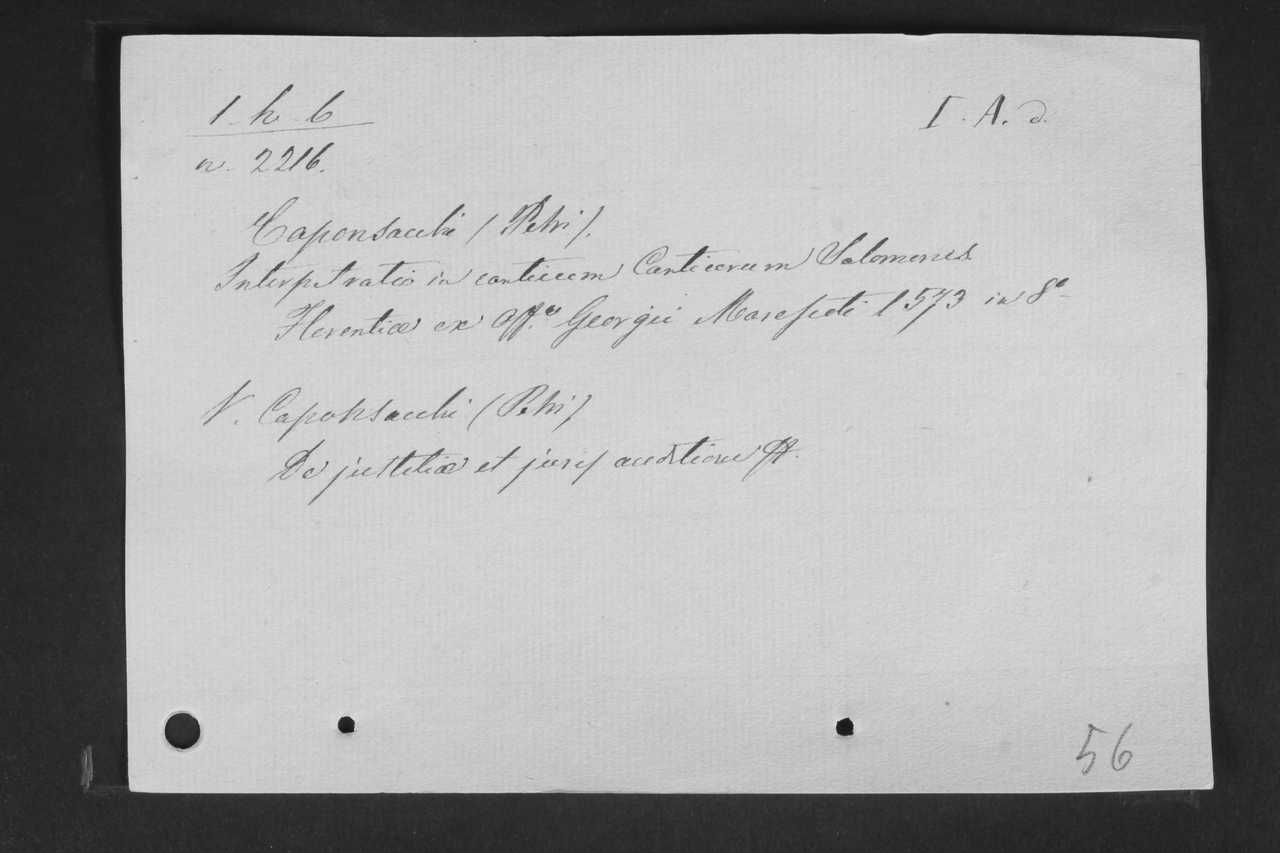 1-h-6
I. A. d.
n. 2216.
Caponsacchi (Petri).
Interpretatio in canticum Canticorum Salomonis
Florentiæ ex Off.ª Georgii Marescoti 1573 in 8º
V. Caponsacchi (Petri)
De justitiæ et juris auditione
56